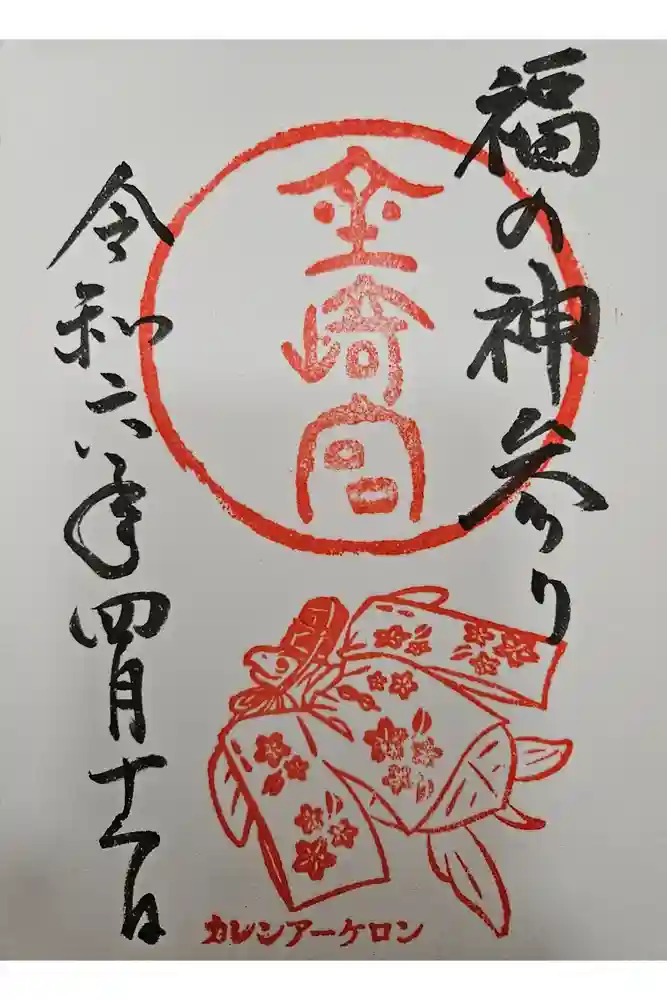 福の神参り
金崎宮
令和六年四月十日
カレンアーケロン